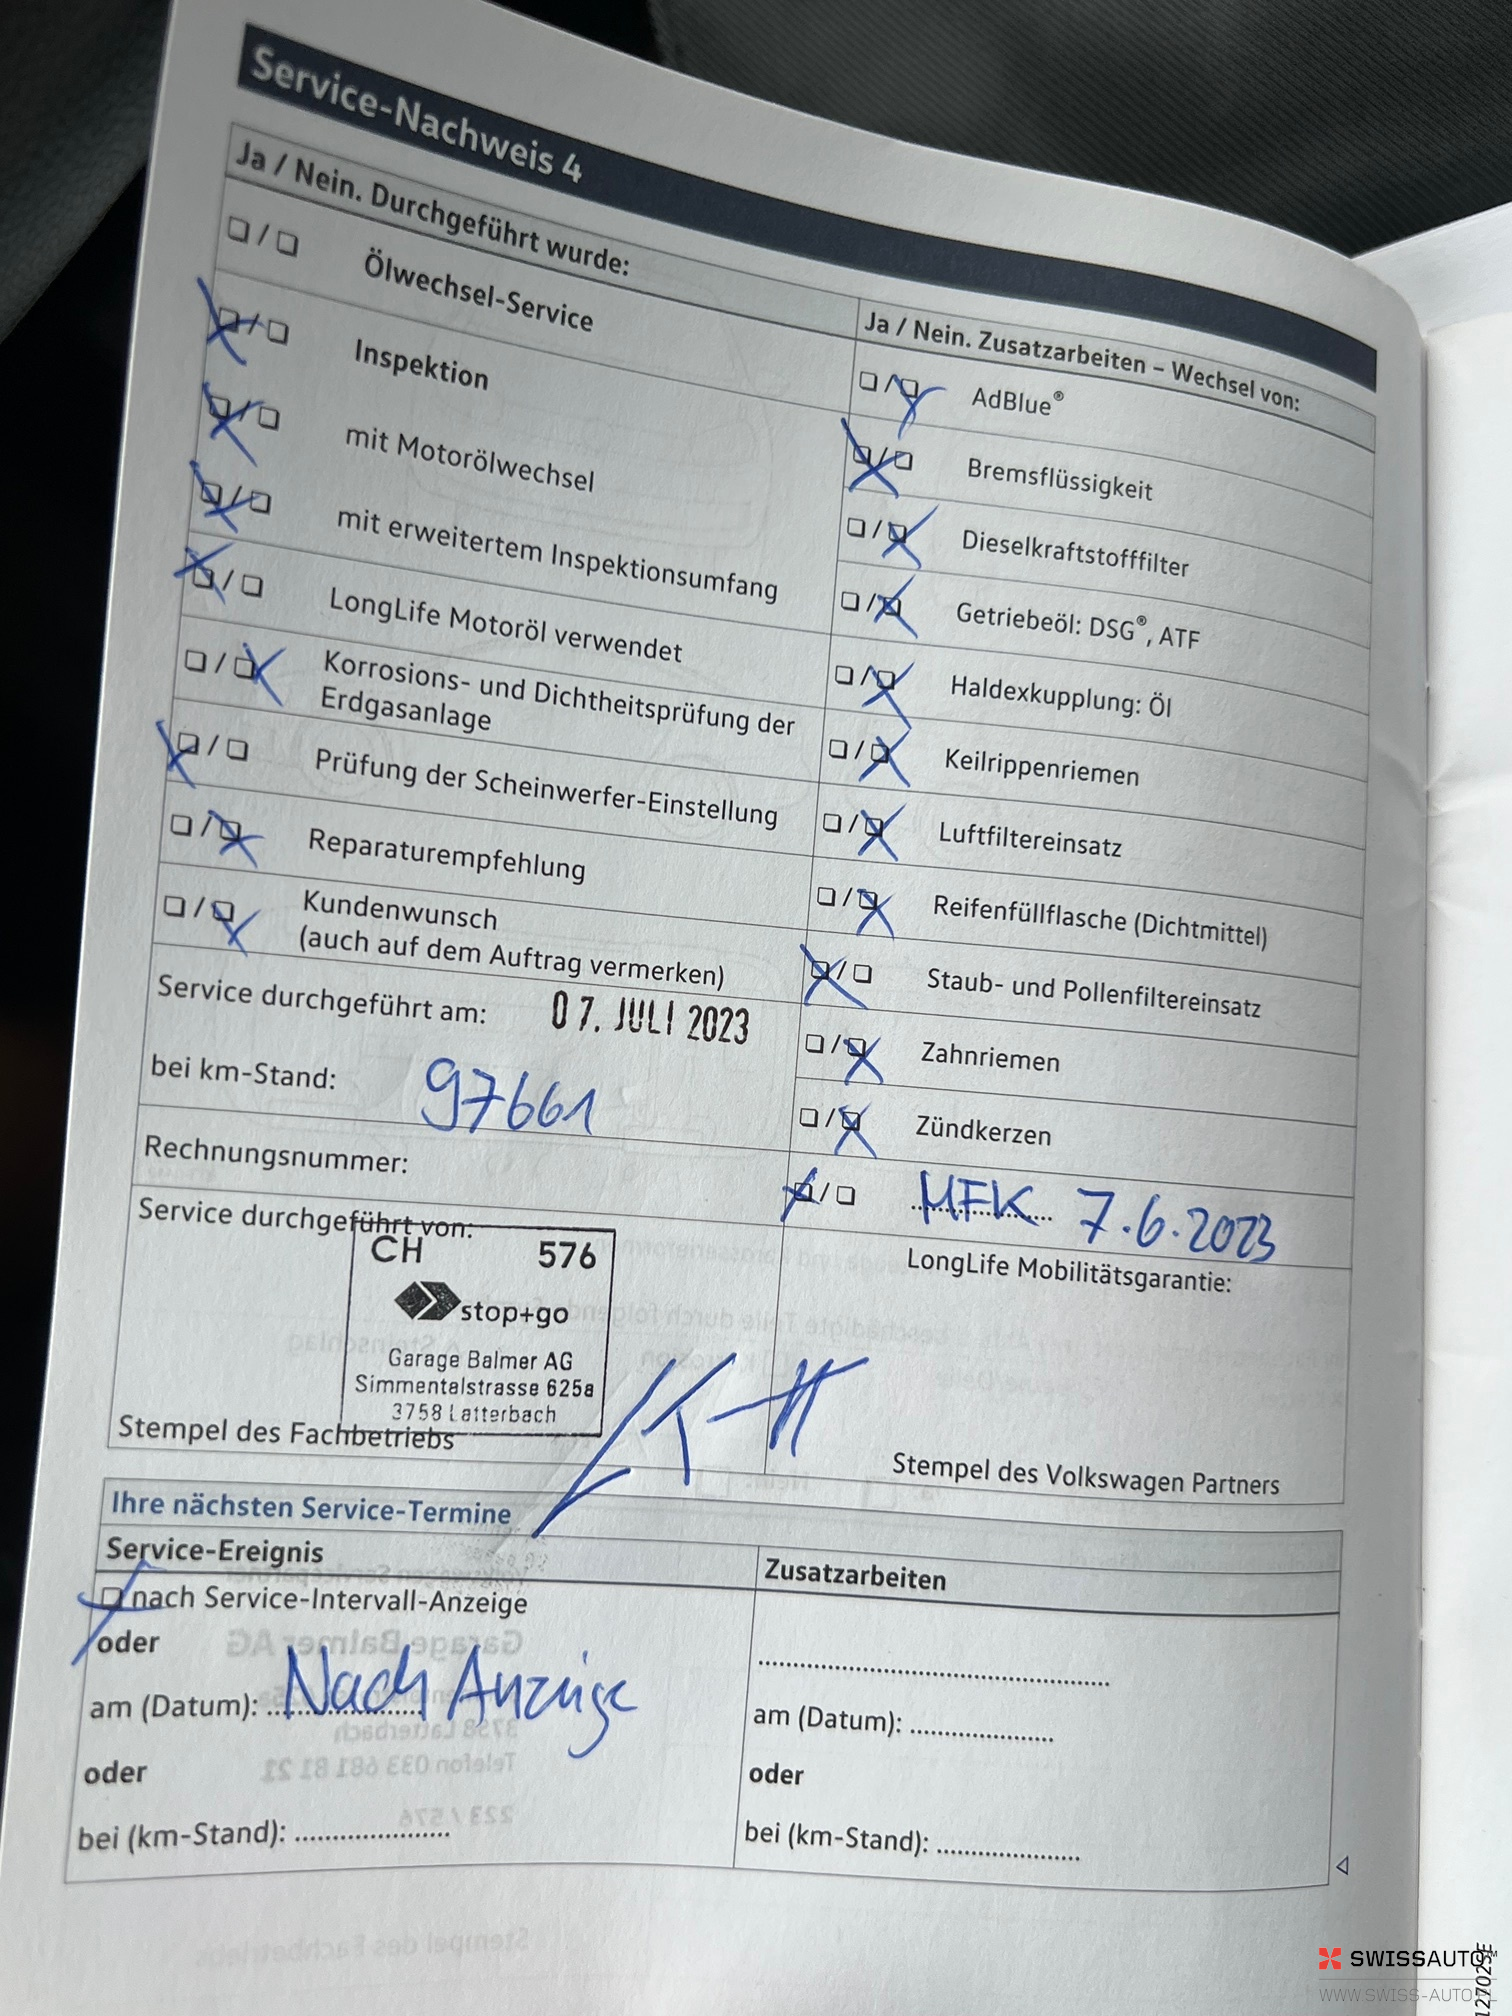 Service-Nachweis 4
Ja / Nein. Durchgeführt wurde:
❏ / ❏ Ölwechsel-Service
❏ / ❏ Inspektion
❏ / ❏ mit Motorölwechsel
❏ / ❏ mit erweitertem Inspektionsumfang
❏ / ❏ LongLife Motoröl verwendet
❏ / ❏ Korrosions- und Dichtheitsprüfung der
Erdgasanlage
❏ / ❏ Prüfung der Scheinwerfer-Einstellung
❏ / ❏ Reparaturempfehlung
❏ / ❏ Kundenwunsch
(auch auf dem Auftrag vermerken)
Service durchgeführt am: 07. JULI 2023
bei km-Stand: 97661
Rechnungsnummer:
Service durchgeführt von:
CH 576
stop+go
Garage Balmer AG
Simmentalstrasse 625a
3758 Latterbach
Stempel des Fachbetriebs
Ja / Nein. Zusatzarbeiten – Wechsel von:
❏ / ❏ AdBlue®
❏ / ❏ Bremsflüssigkeit
❏ / ❏ Dieselkraftstofffilter
❏ / ❏ Getriebeöl: DSG®, ATF
❏ / ❏ Haldexkupplung: Öl
❏ / ❏ Keilrippenriemen
❏ / ❏ Luftfiltereinsatz
❏ / ❏ Reifenfüllflasche (Dichtmittel)
❏ / ❏ Staub- und Pollenfiltereinsatz
❏ / ❏ Zahnriemen
❏ / ❏ Zündkerzen
❏ / ❏ MFK 7.6.2023
LongLife Mobilitätsgarantie:
Stempel des Volkswagen Partners
Ihre nächsten Service-Termine
Service-Ereignis
❏ nach Service-Intervall-Anzeige
oder
am (Datum): Nach Anzeige
oder
bei (km-Stand): ......................
Zusatzarbeiten
..................................................
am (Datum): ....................
oder
bei (km-Stand): ....................
SWISSAUTO
WWW.SWISS-AUTO.PL